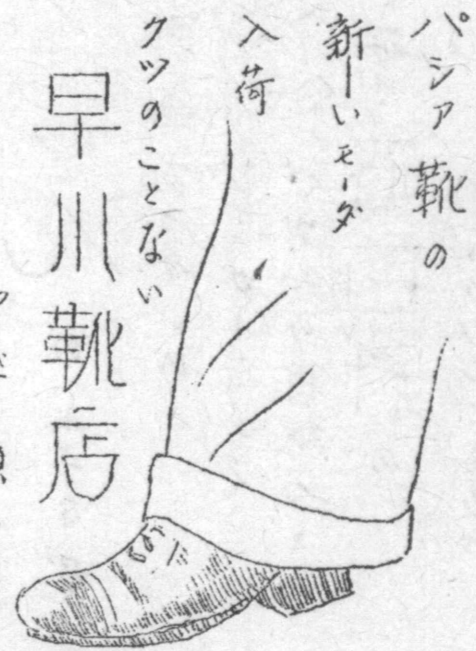 パシア靴の
新しいモーダ
入荷
クツのことない
早川靴店